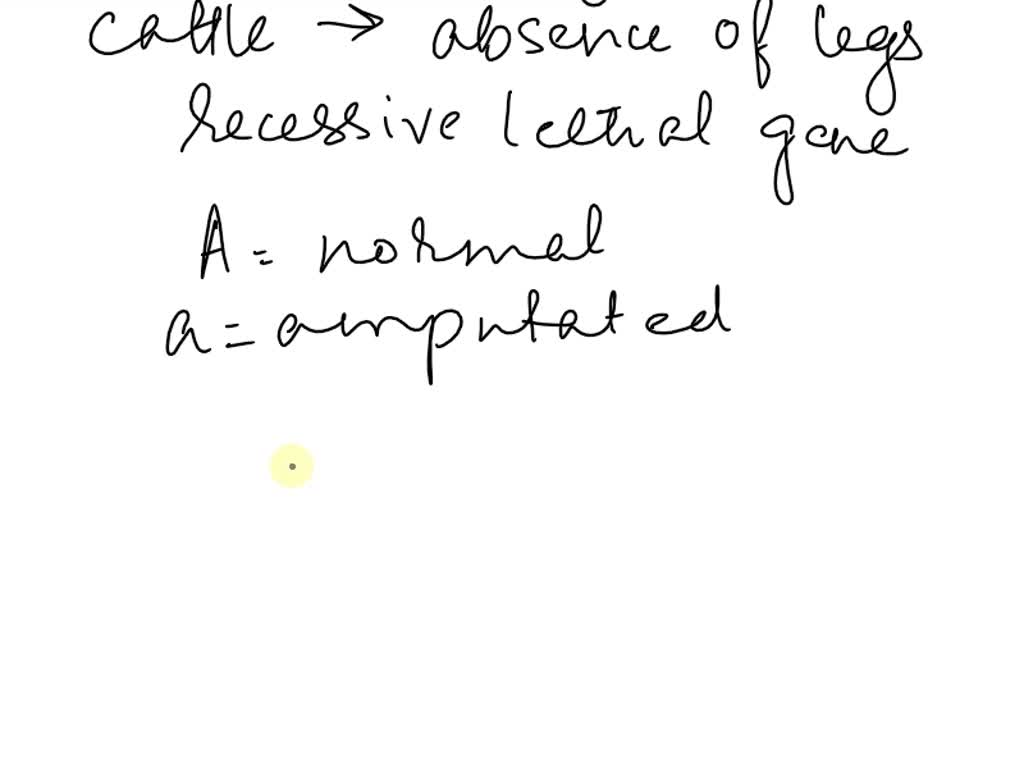 cattle → absence of legs
recessive lethal gene
A = normal
a = amputated